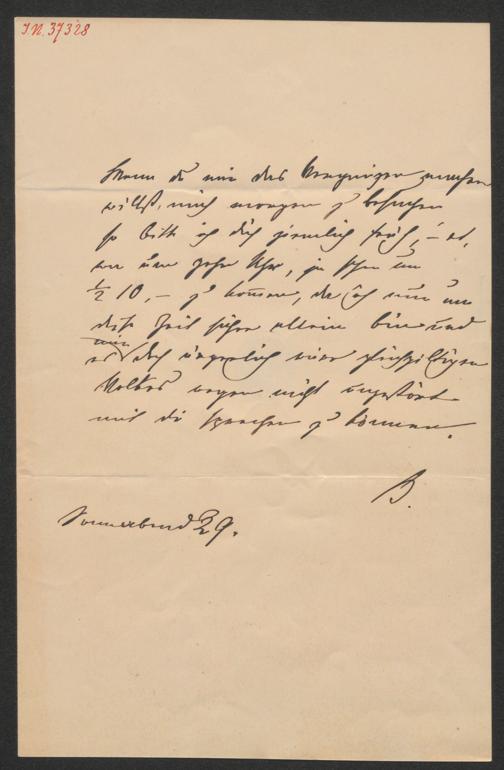 I.N. 37328
Wenn du mir das Vergnügen machen
willst, mich morgen zu besuchen
so bitte ich dich ziemlich früh, –
um zehn Uhr, ja schon um
½ 10, – zu kommen, da ich nur um
diese Zeit sicher allein bin und
es mir doch ärgerlich wäre
Volkes wegen nicht ungestört
mit dir sprechen zu können.
B.
Sonnabend 29.